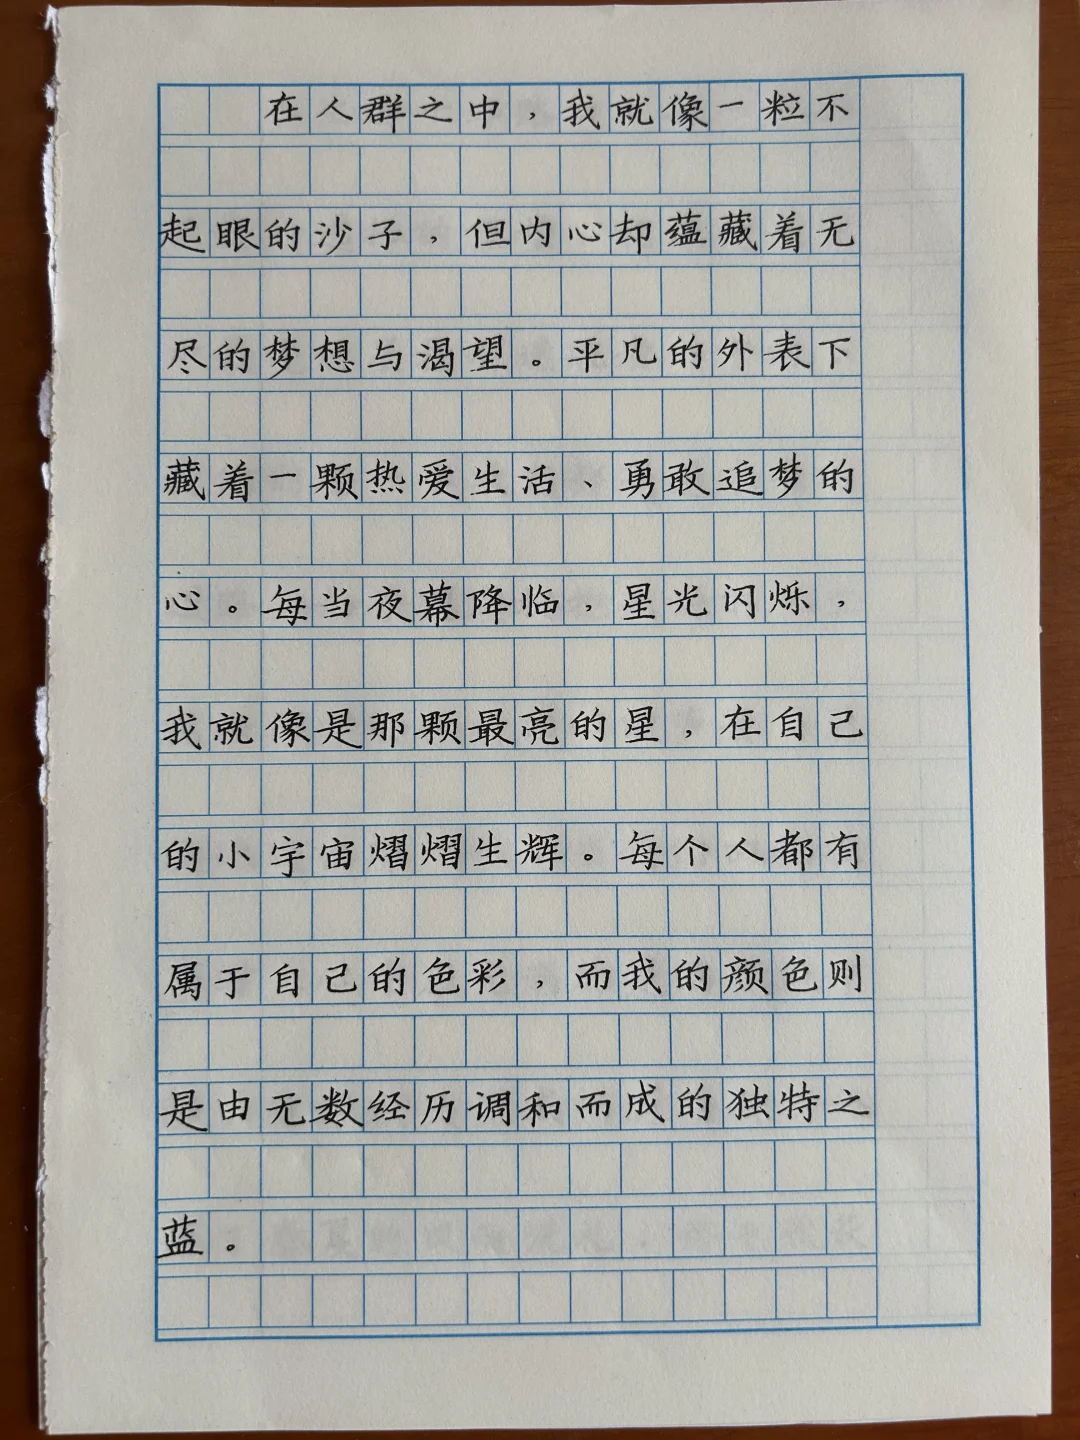 在人群之中，我就像一粒不
起眼的沙子，但内心却蕴藏着无
尽的梦想与渴望。平凡的外表下
藏着一颗热爱生活、勇敢追梦的
心。每当夜幕降临，星光闪烁，
我就像是那颗最亮的星，在自己
的小宇宙熠熠生辉。每个人都有
属于自己的色彩，而我的颜色则
是由无数经历调和而成的独特之
蓝。